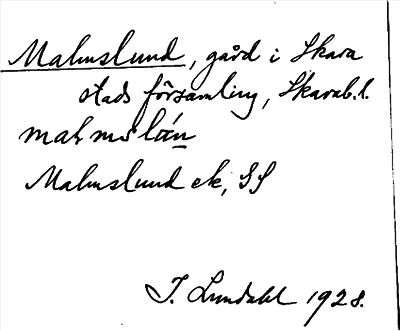 Malmslund, gård i Skara
stads församling, Skarab.l.
Malmslund ek, SS
I. Lundahl 1928.